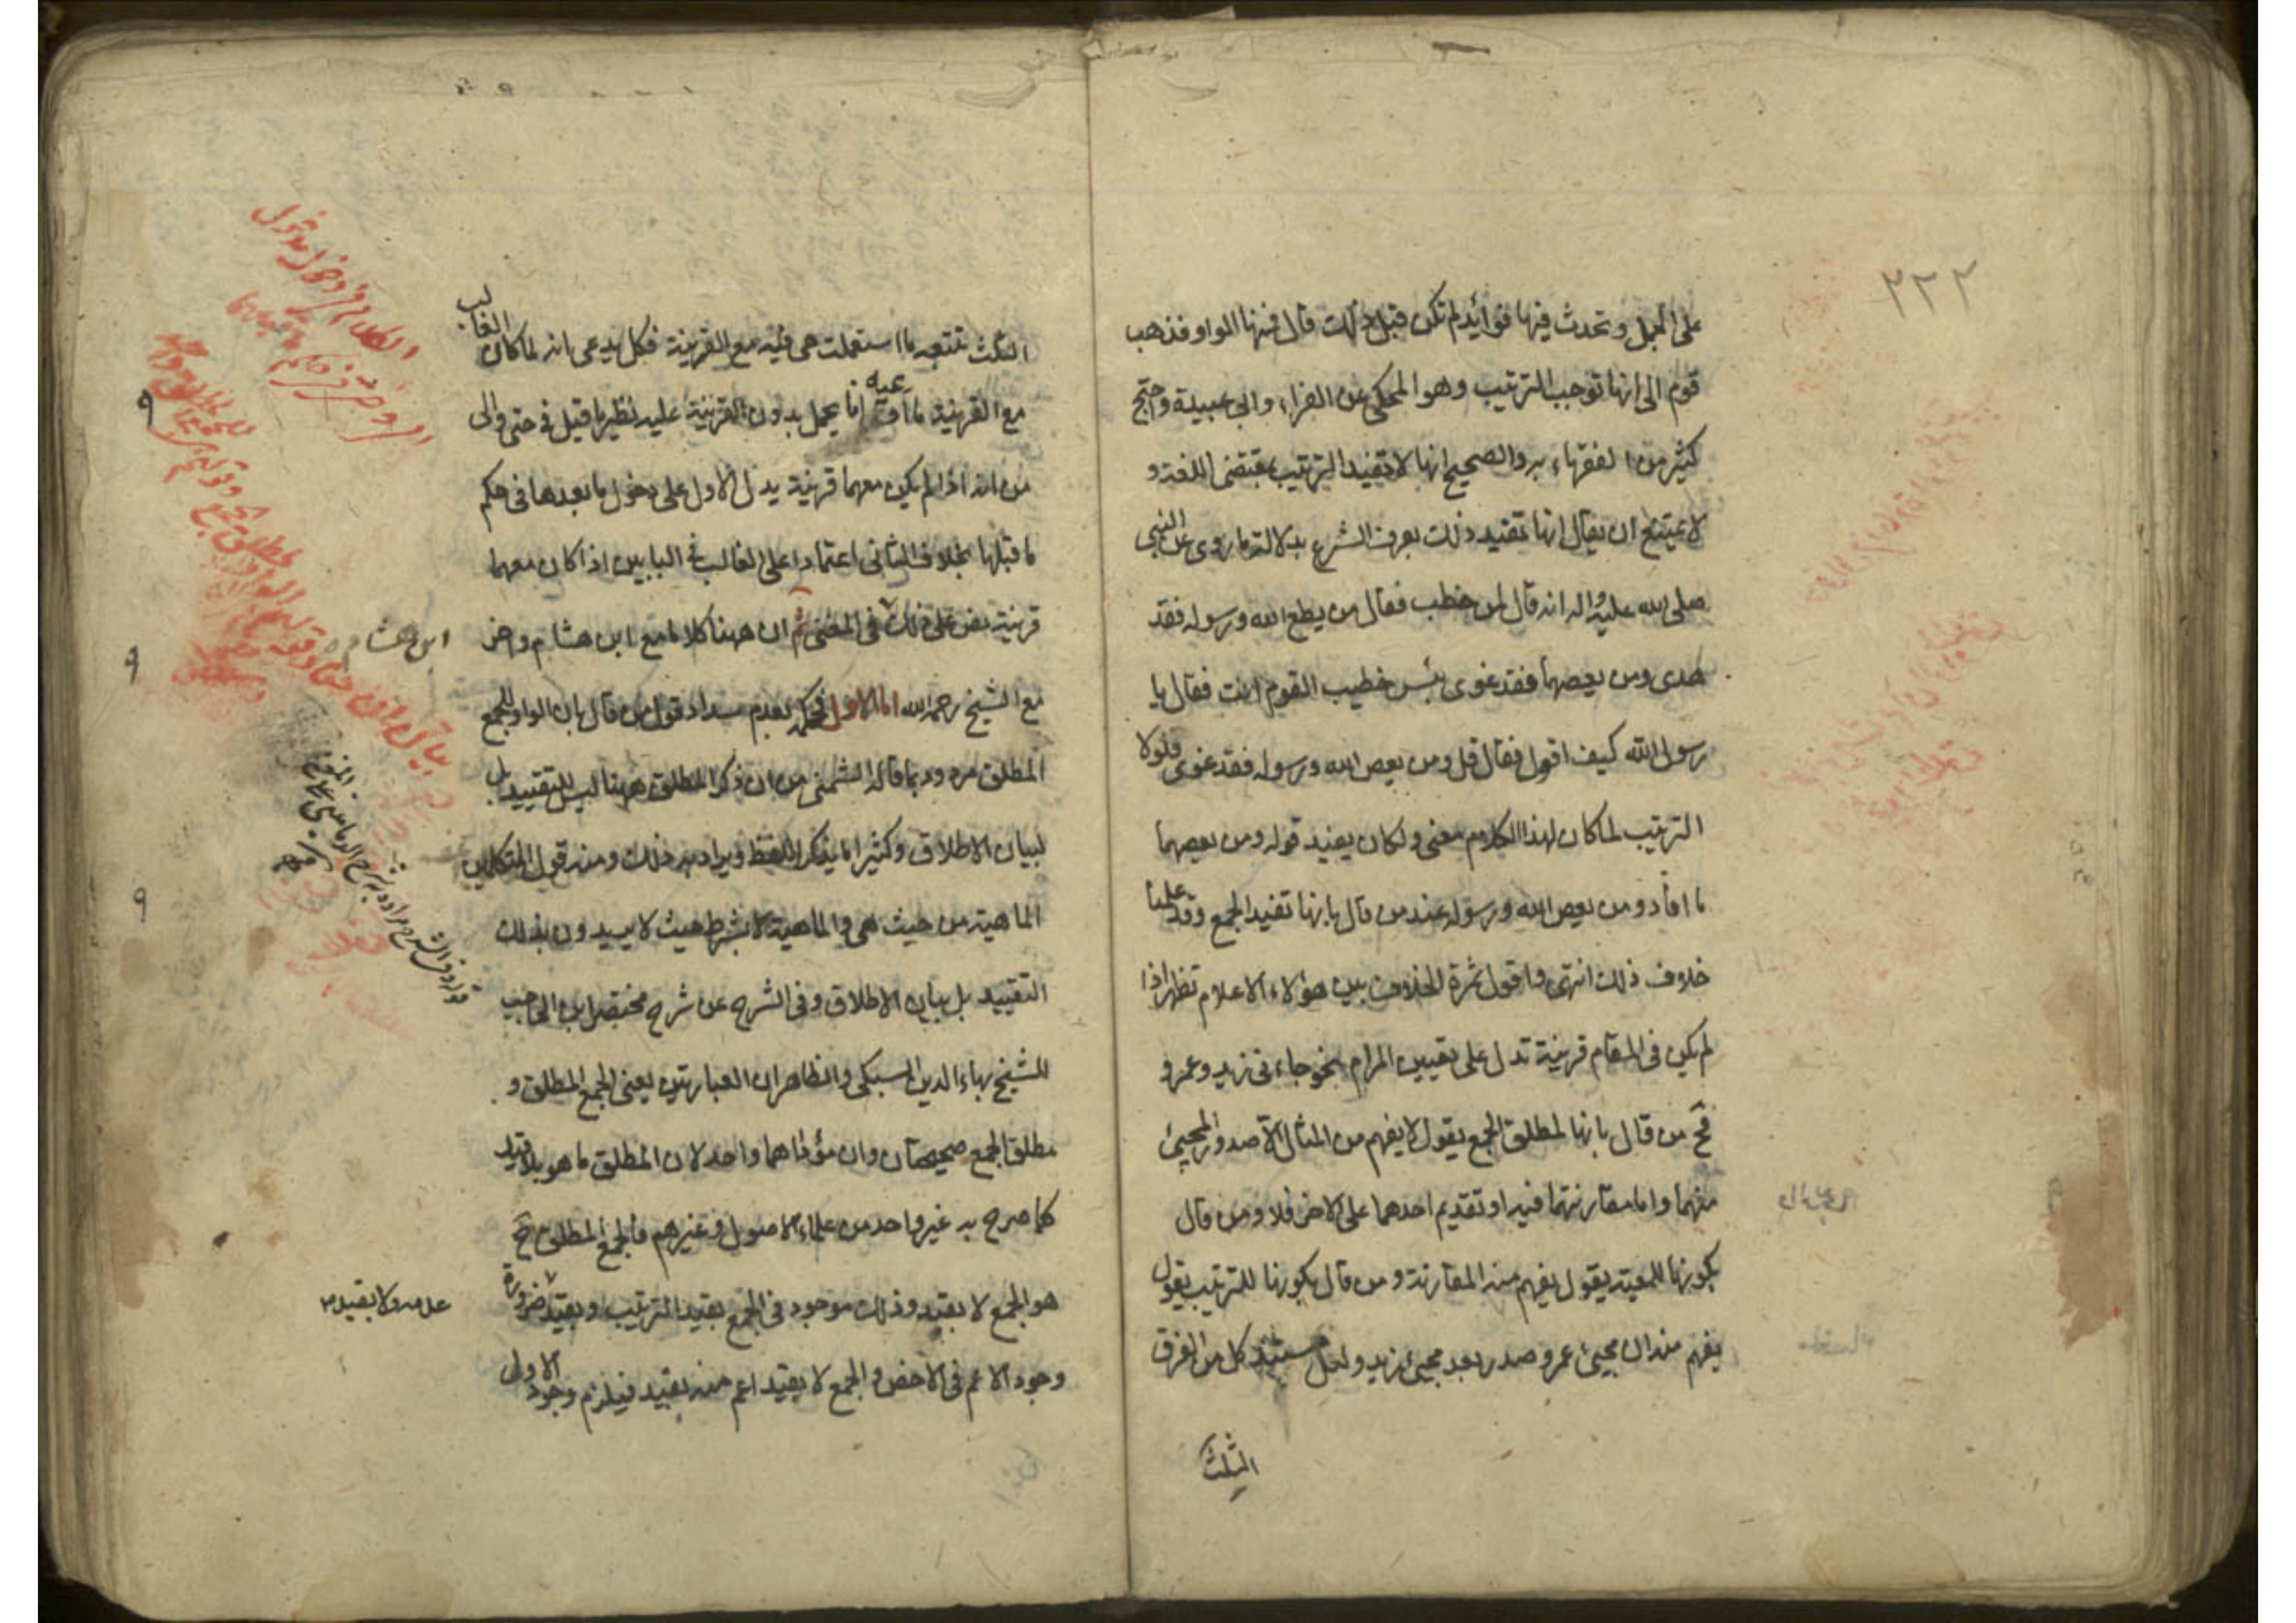 ٢٢٢
على الجمل وتحدث فيها فوائد لم تكن قبل ذلك قال فمنها الواو فذهب
قوم الى انها توجب الترتيب وهو المحكى عن الفراء وابى عبيدة واحتج
كثير من الفقهاء به والصحيح انها لا تفيد الترتيب بمقتضى اللغة و
لا يمتنع ان يقال انها تفيد ذلك بعرف الشرع بدلالة ما روى عن النبى
صلى الله عليه واله انه قال لمن خطب فقال من يطع الله ورسوله فقد
هدى ومن يعصهما فقد غوى بئس خطيب القوم انت فقال يا
رسول الله كيف اقول فقال قل ومن يعص الله ورسوله فقد غوى فلولا
الترتيب لما كان لهذا الكلام معنى ولكان يفيد قوله ومن يعصهما
ما افاد ومن يعص الله ورسوله عند من قال بانها تفيد الجمع وقد علمنا
خلاف ذلك انتهى واقول ثمرة الخلاف بين هؤلاء الاعلام تظهر اذا
لم يكن فى المقام قرينة تدل على تعيين المرام نحو جاءنى زيد وعمرو
فح من قال بانها لمطلق الجمع يقول لا يفهم من المثال الا صدور المجيئ
منهما واما مقارنتهما فيه او تقديم احدهما على الاخر فلا ومن قال
بكونها للمعية يقول يفهم منه المقارنة ومن قال بكونها للترتيب يقول
يفهم منه ان مجيئ عمرو صدر بعد مجيئ زيد ولعل مستند كل من الفرق
الثلث
الثلث تتبع ما استعملت هى فيه مع القرينة فكل يدعى انه لما كان الغالب
مع القرينة ما ادعيه انا يحمل بدون القرينة عليه نظير ما قيل فى حتى والى
من انه اذا لم يكن معهما قرينة يدل الاول على دخول ما بعدها فى حكم
ما قبلها بخلاف الثانى اعتمادا على الغالب فى البابين اذا كان معهما
قرينة نص على ذلك فى المغنى ثم ان ههنا كلاما مع ابن هشام واخر
مع الشيخ رحمه الله اما الاول فحكمه بعدم سداد قول من قال بان الواو للجمع
المطلق مردود بما قاله الشمنى من ان ذكر المطلق ههنا ليس للتقييد بل
لبيان الاطلاق وكثيرا ما يذكر اللفظ ويراد به ذلك ومنه قول المتكلمين
الماهية من حيث هى والماهية لا بشرط حيث لا يريدون بذلك
التقييد بل بيان الاطلاق وفى الشرح عن شرح مختصر ابن الحاجب
للشيخ بهاء الدين السبكى والظاهر ان العبارتين يعنى الجمع المطلق و
مطلق الجمع صحيحتان وان مؤداهما واحد لان المطلق ما هو بلا قيد
كما صرح به غير واحد من علماء الاصول وغيرهم فالجمع المطلق ح
هو الجمع لا بقيد وذلك موجود فى الجمع بقيد الترتيب وبقيد ضرورة
وجود الاعم فى الاخص والجمع لا بقيد اعم منه بقيد فيلزم وجود الاول
ابن هشام